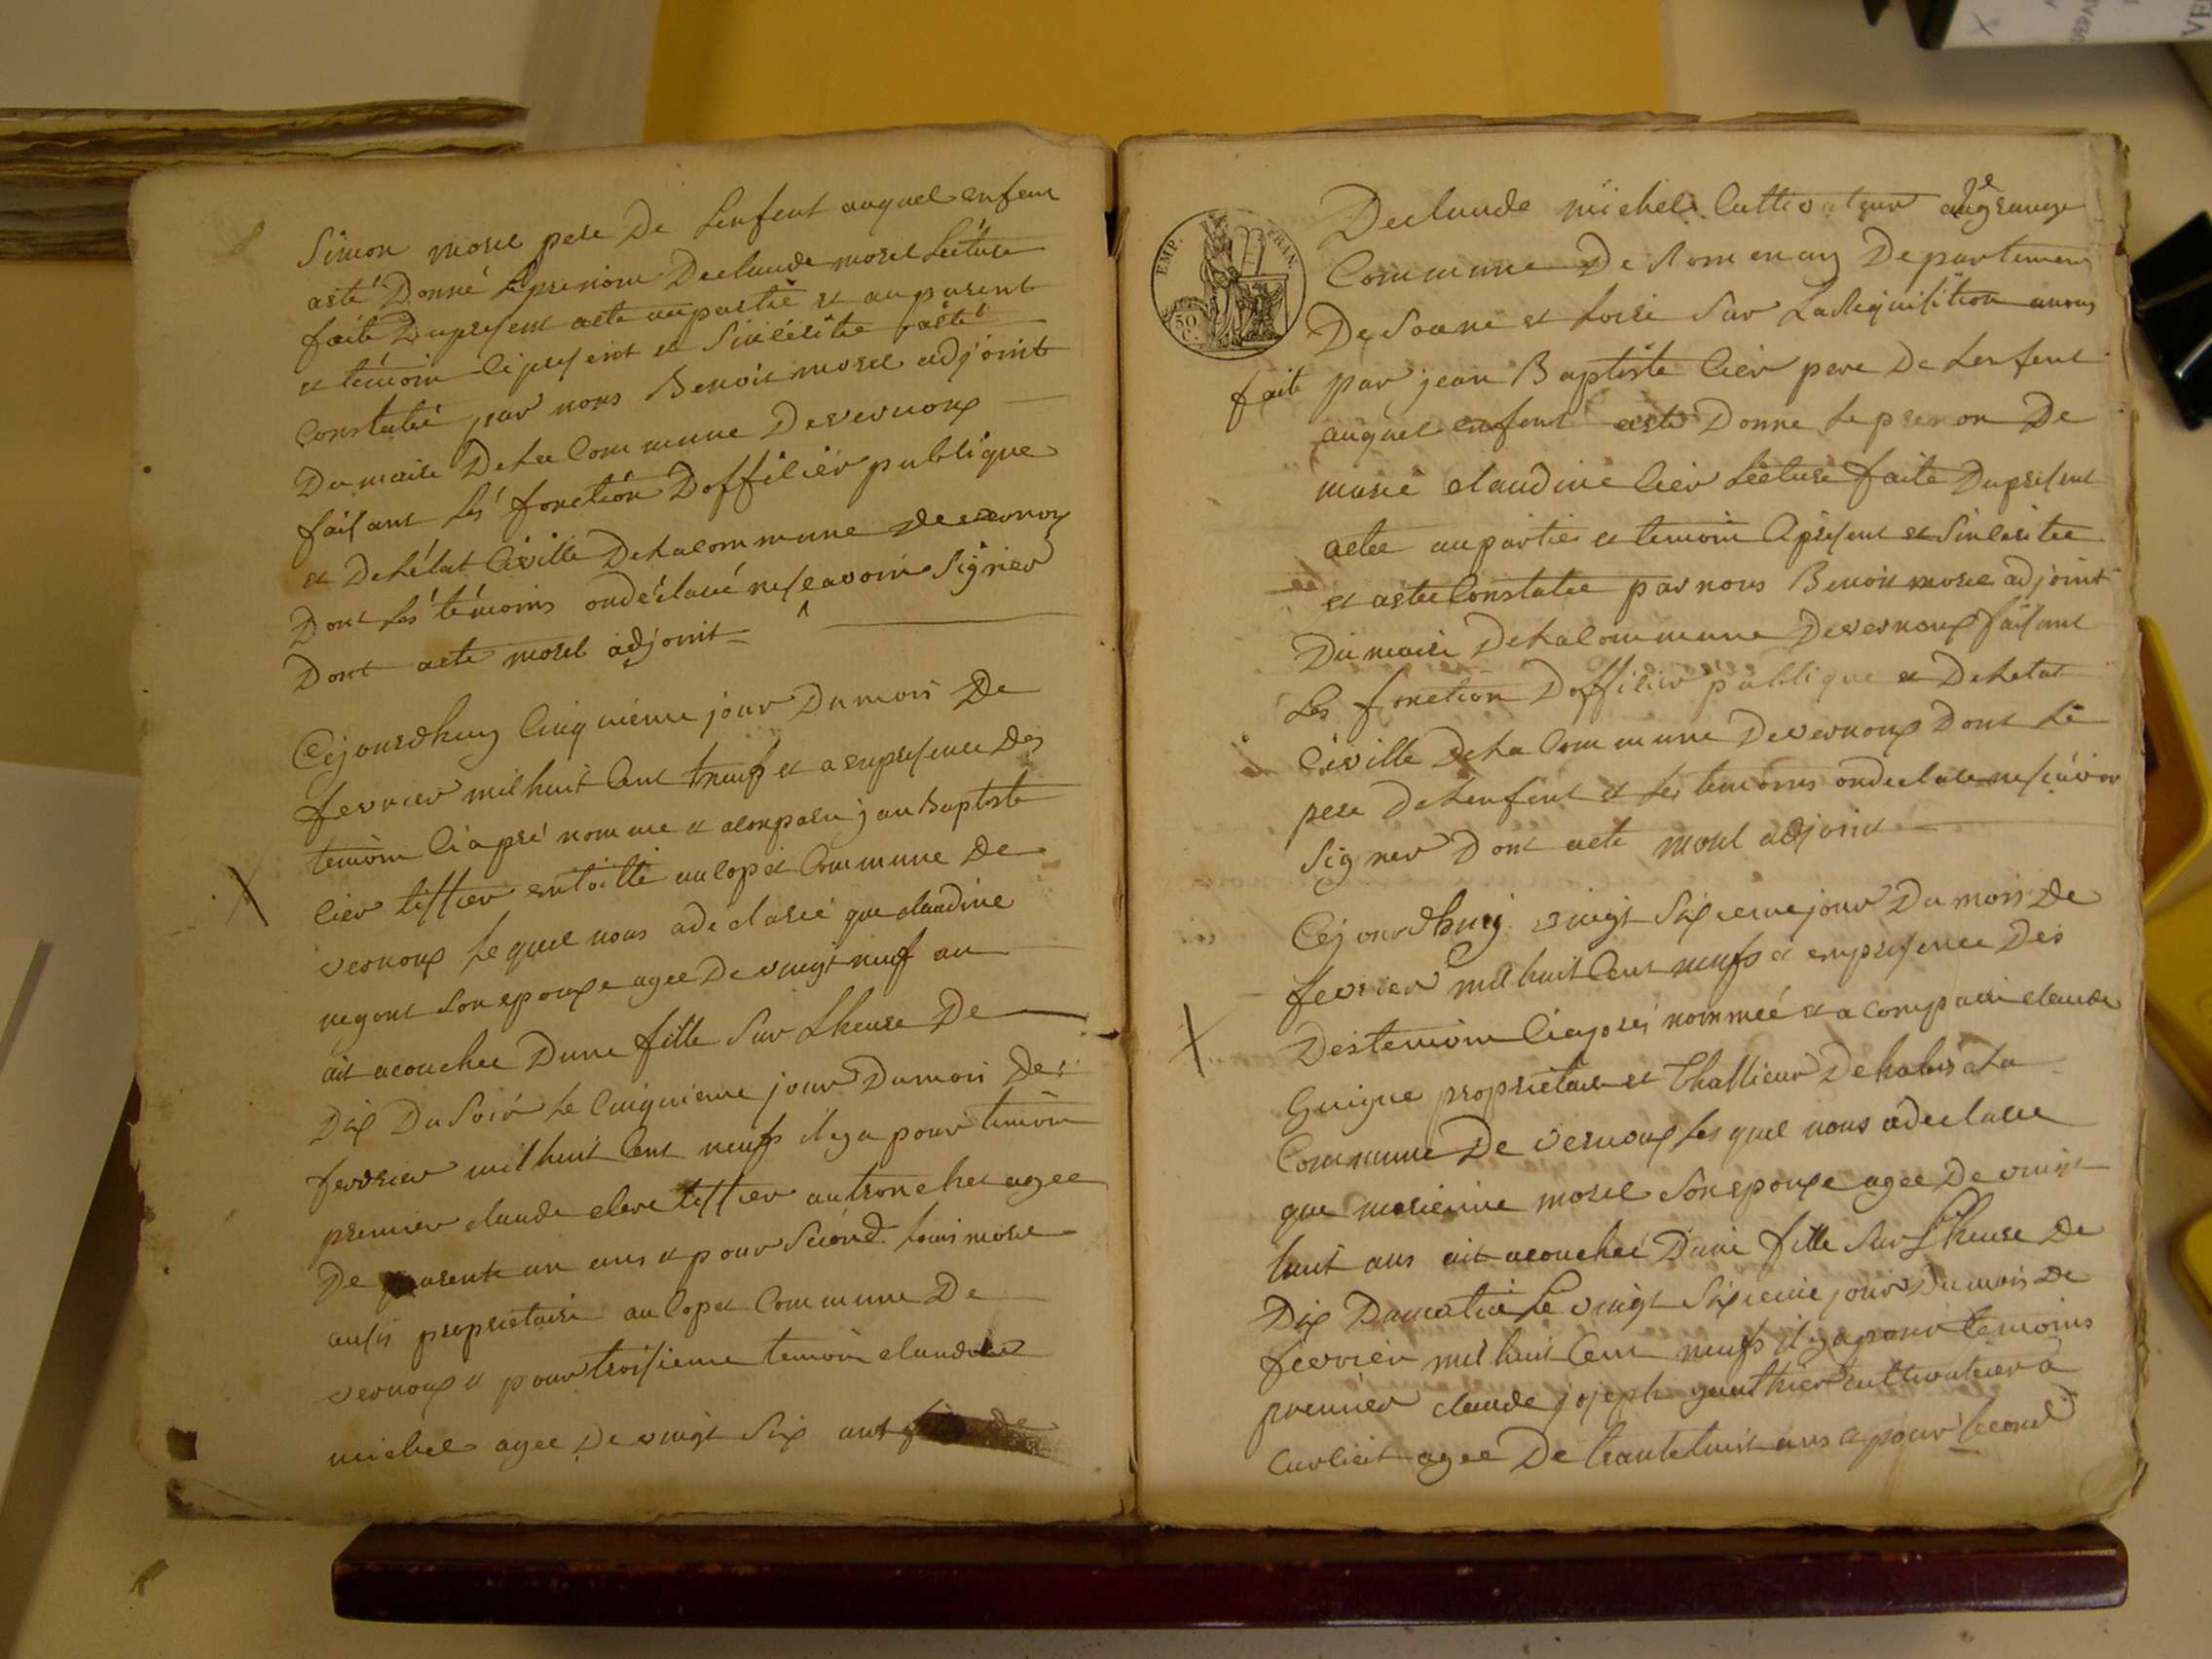 Simon morel pere De Lenfent auquel enfent
aeté Donné Leprenom Declaude morel Lecture
faite Dupresent acte aupartié et auparent
et témoin ci present et Sincérité aété
Constatée par nous Benoit morel adjoint
Du maire Dela Commune Devernoux
faisant Lés fonction Dofficiér publique
et Delétat Civille Delacommune devernoux
Dont Lés témoins ondéclaré nesavoir Signier
Dont acte morel adjoint
Céjourdhuy Cinquieme jour Dumois De
fevrier mil huit Cent neuf et a enpresence des
temoin Ci apré nomme et acomparu jean Baptiste
cier tissier entoille aulopet Commune De
vernoux Lequel nous adeclaré que claudine
negont Son epouxe agee De vingt neuf an
ait acouchee Dune fille Sur Lheure De
Dix Du Soir Le Cinquieme jour Dumois De
fevrier mil huit Cent neuf il ya pour temoin
premier claude clere tissier autronchet agee
De quarente un ans et pour Second Louis morel
ausis proprietaire au lopet Commune De
vernoux et pour troisieme temoin claude
michel agee De vingt Six ans fis De
EMP. FRAN.
50 C.
Declaude michel Cultivateur augrange
Commune De Romenay Departement
De Soane et Loire Sur La Réquisition anous
fait par jean Baptiste Cier pere De Lenfent
auquel enfent aete Donne Leprenon De
marie claudine Cier Lecture faite Dupresent
actee aupartie et temoin Cipresent et Sincerité
et aetee Constatee par nous Benoit morel adjoint
Du maire Delacommune Devernoux faisant
Les fonction Dofficier publique et Deletat
Civille Dela Commune Devernoux Dont Le
pere Delenfent et Les temoins ondeclare nesavoir
Signer Dont acte morel adjoint
Céjourdhuy vingt Sixieme jour Du mois De
fevrier mil huit Cent neuf et enpresence Des
Destemoin Ciapres nommeé et a comparu claude
Guigue proprietaire et Demeurant
Commune De vernoux Les quel nous adeclare
que morel Son epouxe agee De vingt
huit ans ait acouchée Dune fille Sur Lheure De
Dix Dumatin Le vingt Sixieme jour Du mois De
fevrier mil huit Cent neuf il ya pour temoins
premier claude joseph gauthier cultivateur à
Curliait agee De trante huit ans et pour Second